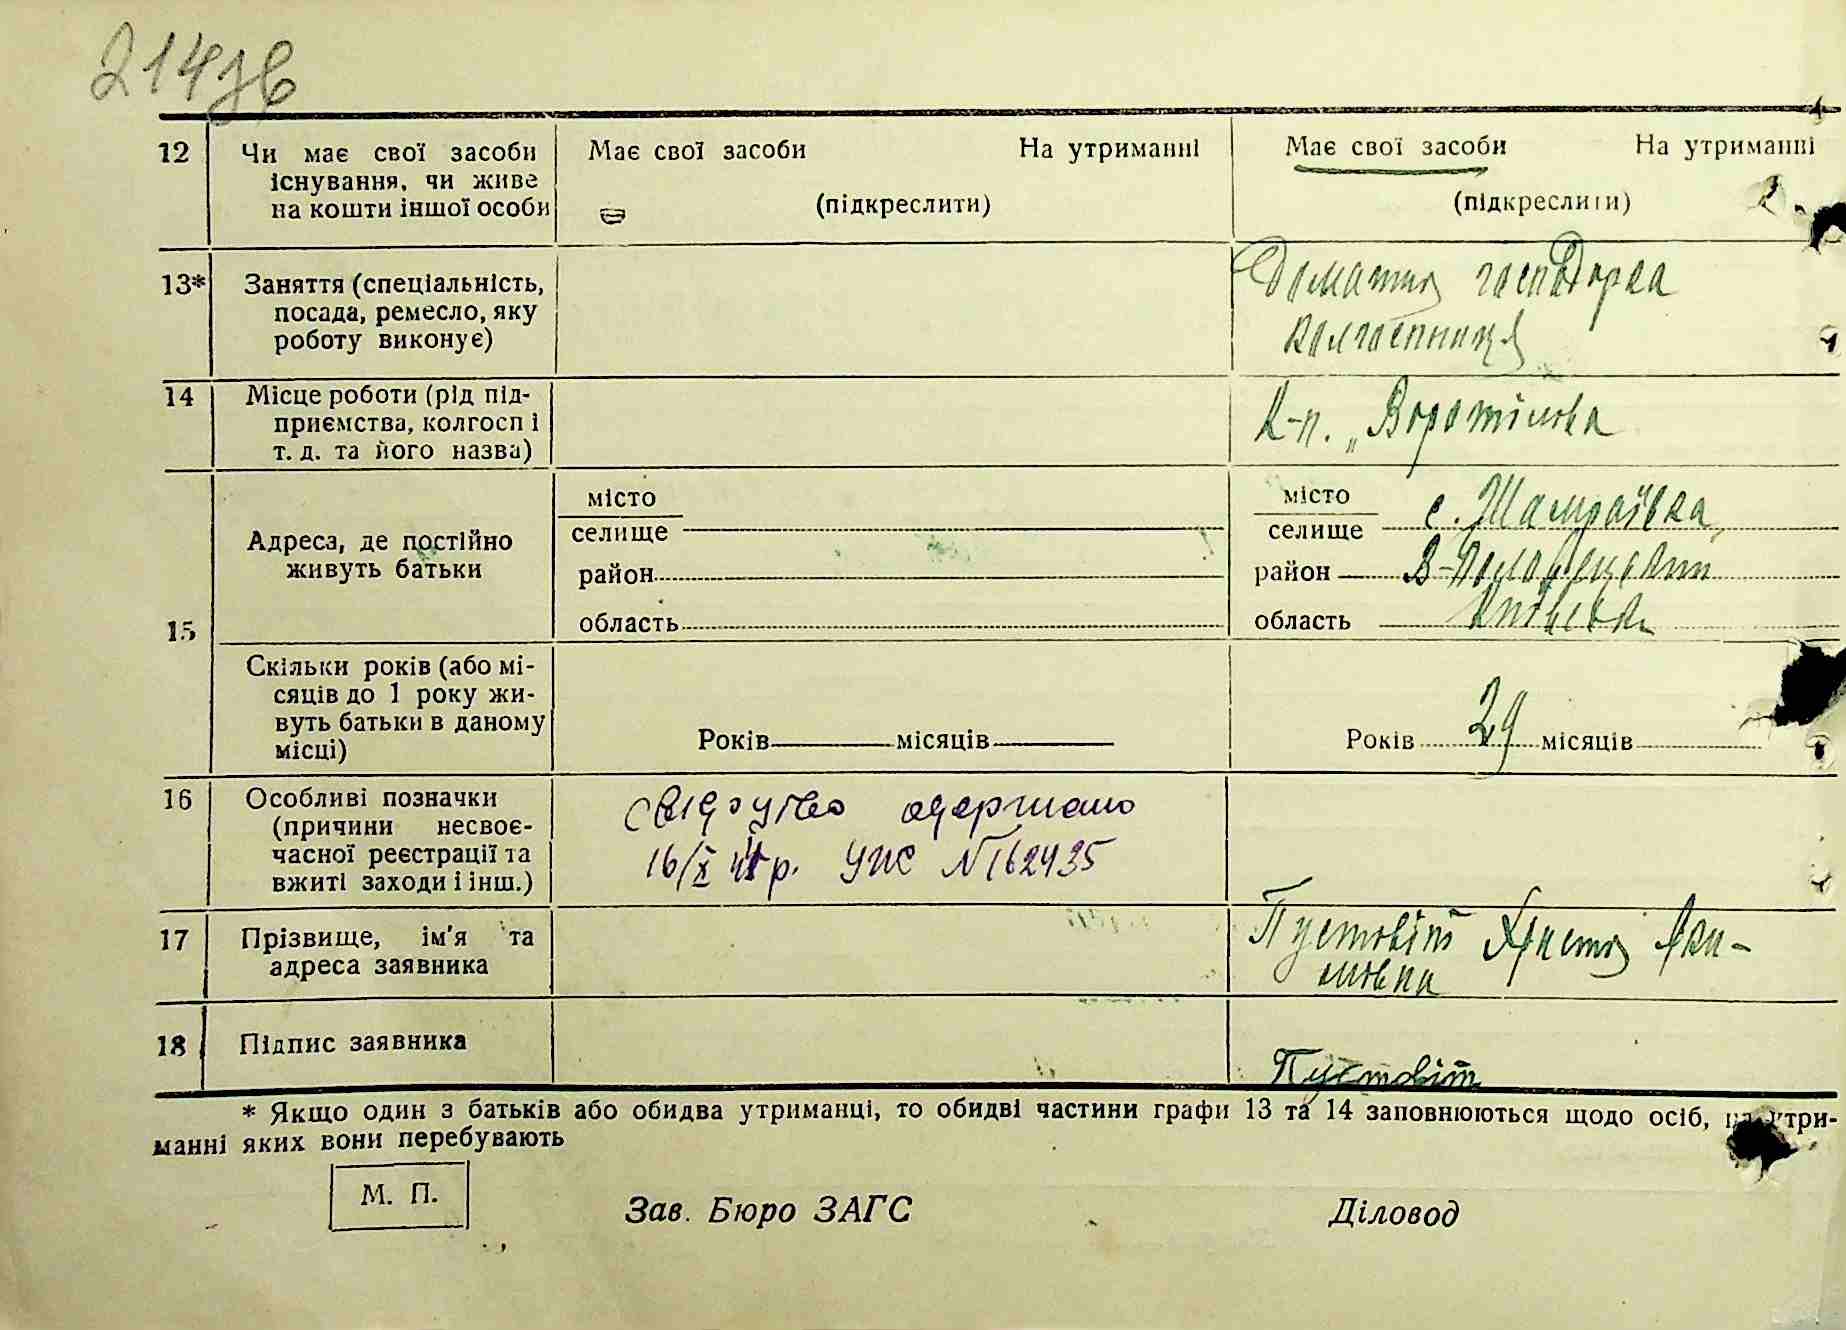 214зв
12 Чи має свої засоби існування, чи живе на кошти іншої особи
Має свої засоби На утриманні
(підкреслити)
Має свої засоби На утриманні
(підкреслити)
13* Заняття (спеціальність, посада, ремесло, яку роботу виконує)
Домашня господарка
колгоспниця
14 Місце роботи (рід підприємства, колгосп і т. д. та його назва)
К-п. „Воротілова
15 Адреса, де постійно живуть батьки
місто
селище
район
область
місто
селище с. Шамраївка,
район В-Половецький
область Київська
Скільки років (або місяців до 1 року живуть батьки в даному місці)
Років місяців
Років 29 місяців
16 Особливі позначки (причини несвоєчасної реєстрації та вжиті заходи і інш.)
свідоцтво одержано
16/X р. № 162435
17 Прізвище, ім'я та адреса заявника
Пустовіт Христя Яки-
мовна
18 Підпис заявника
Пустовіт
* Якщо один з батьків або обидва утриманці, то обидві частини графи 13 та 14 заповнюються щодо осіб, на утри-
манні яких вони перебувають
М. П.
Зав. Бюро ЗАГС
Діловод